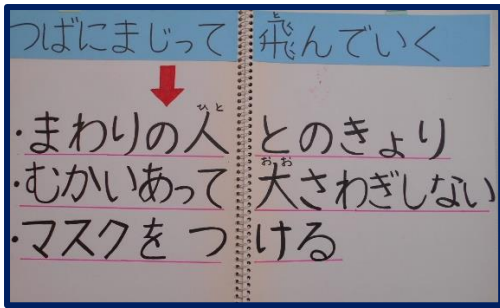 つばにまじって飛んでいく
・まわりの人とのきょり
・むかいあって大さわぎしない
・マスクをつける